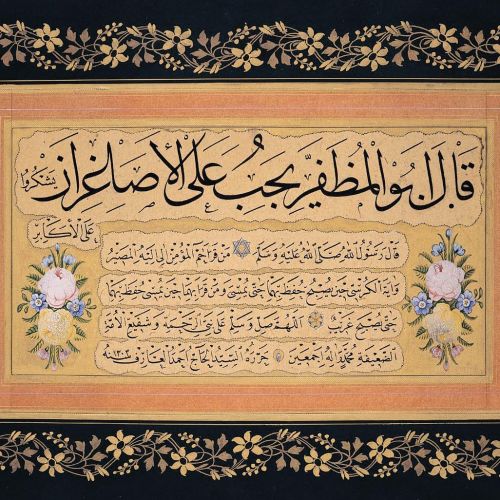 قال ابو المظفر يجب على الاصاغر ان يشكروا
على الاكابر
قال رسول الله صلى الله عليه وسلم من قرا حم المؤمن الى اليه المصير
واية الكرسى حين يصبح حفظ بهما حتى يمسى ومن قرا بهما حين يمسى حفظ بهما
حتى يصبح غريب اللهم صل وسلم على نبى الرحمة وشفيع الامة
الضعيفة محمد واله اجمعين حرره السيد الحاج احمد العارف سنه ١٣٠٣